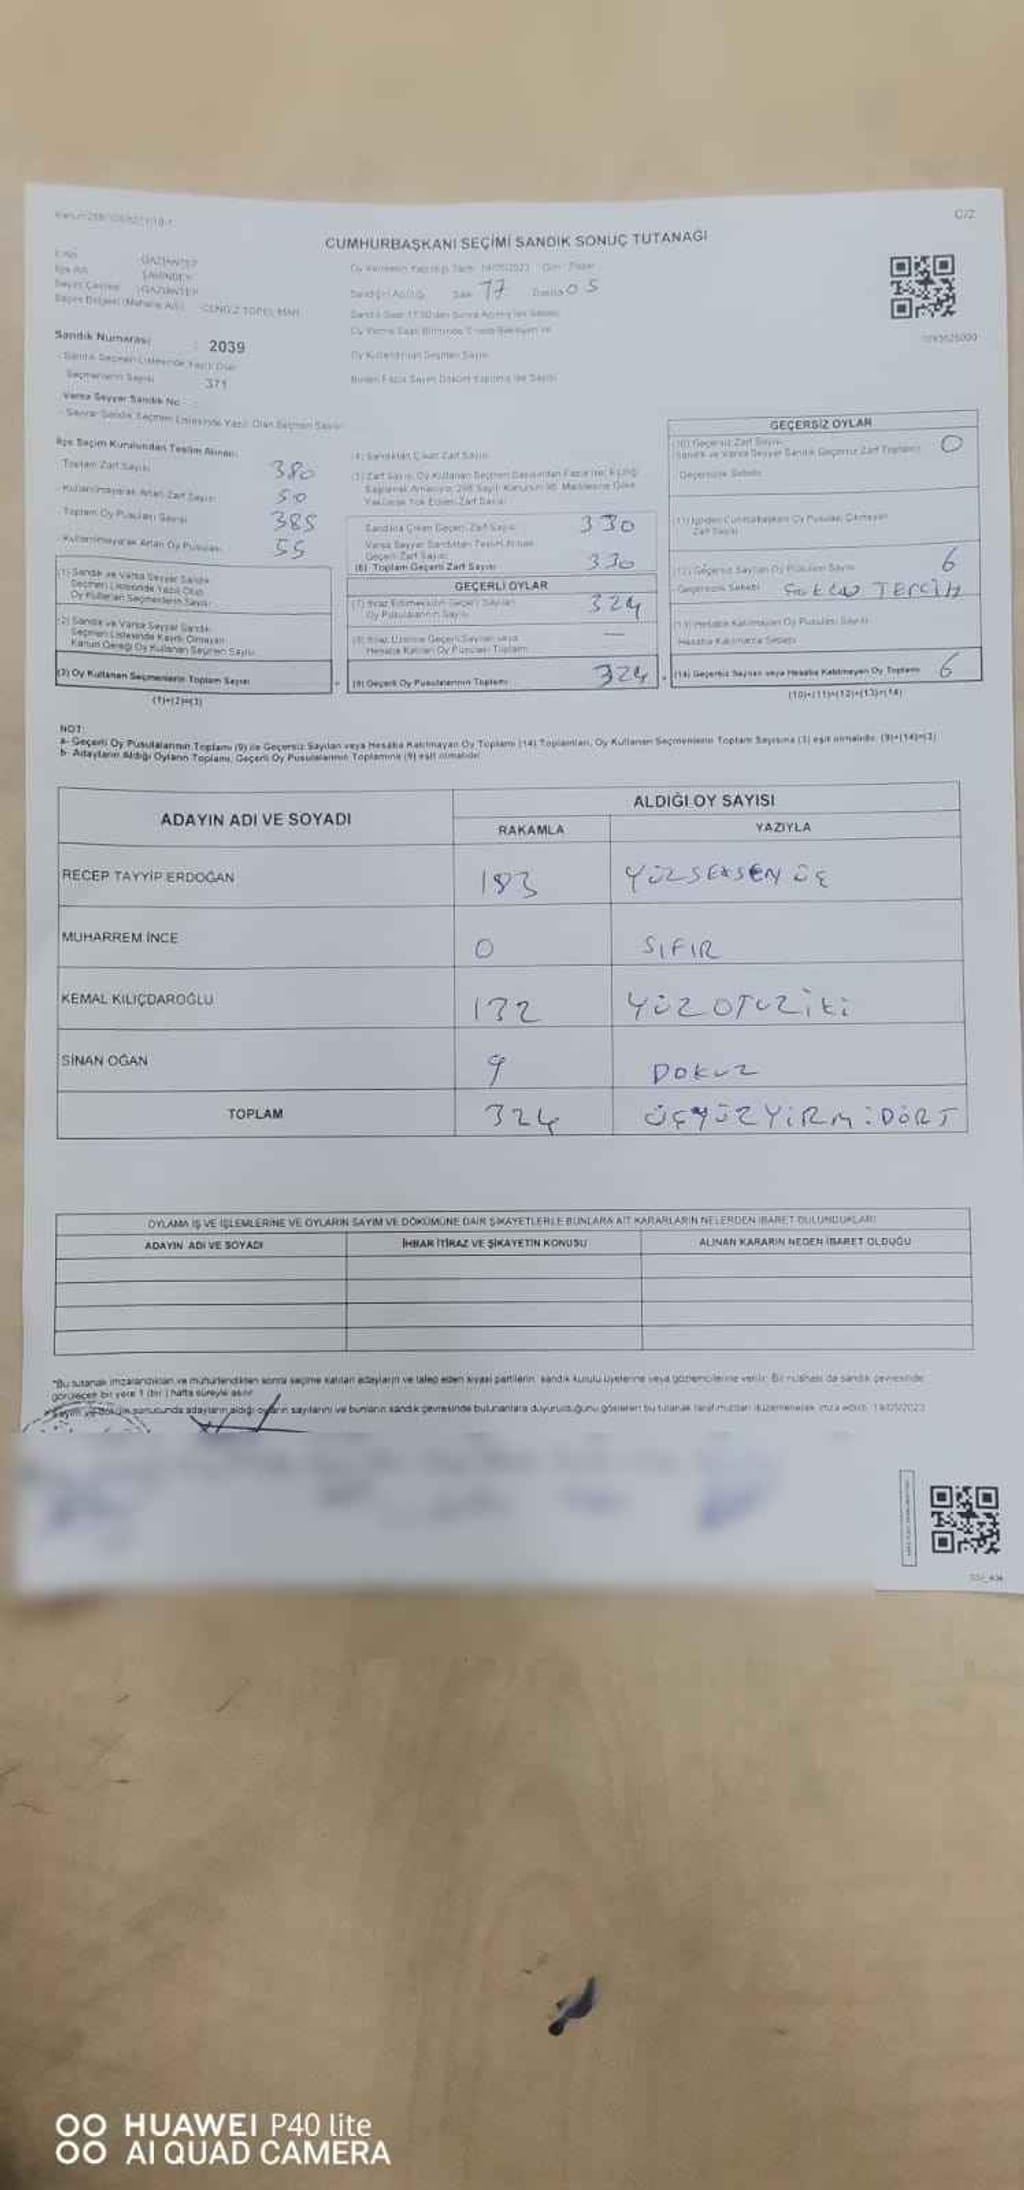 C/2
CUMHURBAŞKANI SEÇİMİ SANDIK SONUÇ TUTANAĞI
İlçe Adı ŞAHİNBEY
Seçim Çevresi GAZİANTEP
Seçim Bölgesi (Mahalle Adı) CENGİZ TOPEL MAH.
Oy Vermenin Yapıldığı Tarih 14/05/2023 Gün Pazar
Sandığın Açıldığı Saat 17 Dakika 05
Sandık Numarası : 2039
- Sandık Seçmen Listesinde Yazılı Olan
Seçmenlerin Sayısı 371
Varsa Seyyar Sandık No :
- Seyyar Sandık Seçmen Listesinde Yazılı Olan Seçmen Sayısı
İlçe Seçim Kurulundan Teslim Alınan:
- Toplam Zarf Sayısı 380
- Kullanılmayarak Artan Zarf Sayısı 50
- Toplam Oy Pusulası Sayısı 385
- Kullanılmayarak Artan Oy Pusulası 55
(1) Sandık ve Varsa Seyyar Sandık
Seçmen Listesinde Yazılı Olup
Oy Kullanan Seçmenlerin Sayısı
(2) Sandık ve Varsa Seyyar Sandık
Seçmen Listesinde Kayıtlı Olmayan
Kanun Gereği Oy Kullanan Seçmen Sayısı
(3) Oy Kullanan Seçmenlerin Toplam Sayısı
(1)+(2)=(3)
(4) Sandıktan Çıkan Zarf Sayısı
Sandıkta Çıkan Geçerli Zarf Sayısı 330
Varsa Seyyar Sandıktan Teslim Alınan
Geçerli Zarf Sayısı
(6) Toplam Geçerli Zarf Sayısı 330
GEÇERLİ OYLAR
(7) İtiraz Edilmeksizin Geçerli Sayılan
Oy Pusulalarının Sayısı 324
(8) İtiraz Üzerine Geçerli Sayılan veya
Hesaba Katılan Oy Pusulası Toplamı —
(9) Geçerli Oy Pusulalarının Toplamı 324
GEÇERSİZ OYLAR
(10) Geçersiz Zarf Sayısı
(Sandık ve Varsa Seyyar Sandık Geçersiz Zarf Toplamı) 0
Geçersizlik Sebebi
Zarf Sayısı
(12) Geçersiz Sayılan Oy Pusulası Sayısı 6
Geçersizlik Sebebi TERCİH
(13) Hesaba Katılmayan Oy Pusulası Sayısı
Hesaba Katılmama Sebebi
(14) Geçersiz Sayılan veya Hesaba Katılmayan Oy Toplamı 6
(10)+(11)+(12)+(13)=(14)
NOT:
a- Geçerli Oy Pusulalarının Toplamı (9) ile Geçersiz Sayılan veya Hesaba Katılmayan Oy Toplamı (14) Toplamları, Oy Kullanan Seçmenlerin Toplam Sayısına (3) eşit olmalıdır. (9)+(14)=(3)
b- Adayların Aldığı Oyların Toplamı, Geçerli Oy Pusulalarının Toplamına (9) eşit olmalıdır.
ADAYIN ADI VE SOYADI
ALDIĞI OY SAYISI
RAKAMLA YAZIYLA
RECEP TAYYİP ERDOĞAN 183 YÜZSEKSEN ÜÇ
MUHARREM İNCE 0 SIFIR
KEMAL KILIÇDAROĞLU 132 YÜZOTUZİKİ
SİNAN OĞAN 9 DOKUZ
TOPLAM 324 ÜÇYÜZYİRMİDÖRT
OYLAMA İŞ VE İŞLEMLERİNE VE OYLARIN SAYIM VE DÖKÜMÜNE DAİR ŞİKAYETLERLE BUNLARA AİT KARARLARIN NELERDEN İBARET BULUNDUKLARI
ADAYIN ADI VE SOYADI İHBAR İTİRAZ VE ŞİKAYETİN KONUSU ALINAN KARARIN NEDEN İBARET OLDUĞU
"Bu tutanak imzalandıktan ve mühürlendikten sonra seçime katılan adayların ve talep eden siyasi partilerin, sandık kurulu üyelerine veya gözlemcilerine verilir. Bir nüshası da sandık çevresinde
görülecek bir yere 1 (bir) hafta süreyle asılır.
Sayım ve döküm sonucunda adayların aldığı oyların sayılarını ve bunların sandık çevresinde bulunanlara duyurulduğunu gösteren bu tutanak tarafımızdan düzenlenerek imza edildi. 14/05/2023
HUAWEI P40 lite
AI QUAD CAMERA